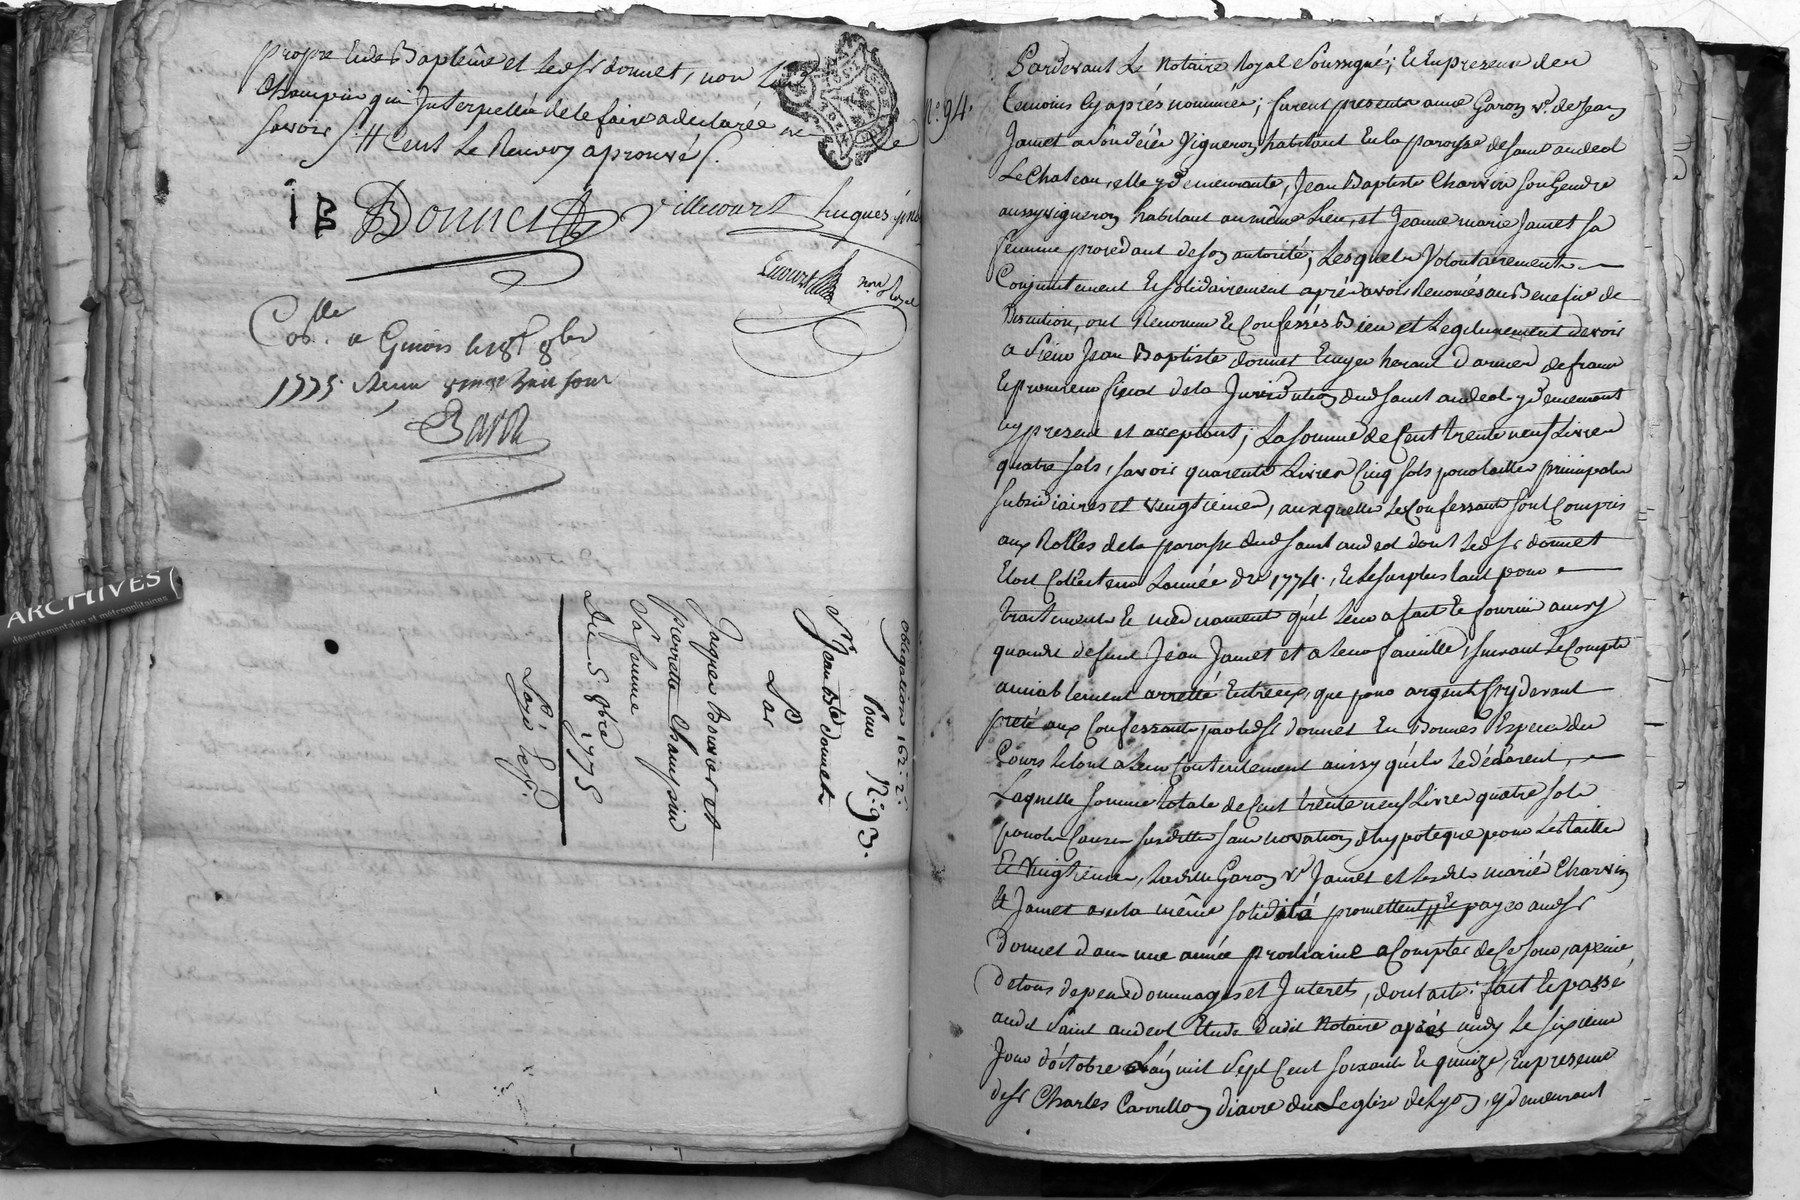 propre lude Baptême et ledsr donnet, non lad
Champin qui Interpellée de le faire a declarée ne le
savoir // Cent Le Renvoy aprouvé /.
IB Donnet Villecourt hugues
Ecourt nore Royal
Coll. a Givors le 18 8bre
1775. Reçu vingt huit sous
Baron
ARCHIVES
départementales et métropolitaines
obligation 162 . 2 s.
Pour N.º 93.
Sr Jean Bte donnet
Par
Jaques Bouvier et
pierrette Champin
Sa femme
Du 5 8bre 1775
N.º 94.
Pardevant Le Notaire Royal Soussigné; Et En presence des
temoins Cy après nommés; furent presents anne Garon ve. de Jean
Jamet a son déces Vigneron habitant En la paroisse de saint andeol
Le Chateau, elle y demeurante, Jean Baptiste Charvin son Gendre
aussy vigneron habitant au même Lieu, et Jeanne marie Jamet sa
femme procédant de son autorité; Lesquels Volontairement
Conjointement Et solidairement après avoir Renoncés au Benefice de
Discution, ont Reconnu Et Confessés Bien et Legitimement devoir
a Sieur Jean Baptiste donnet Ecuyer heraut d'armes de france
Et procureur fiscal de la Jurisdiction dud saint andeol y demeurant
Cy present et acceptant; La somme de Cent trente neuf Livres
quatre sols, savoir quarente Livres Cinq sols pour tailles principales
subsidiaires et vingtieme, auxquelles les Confessants sont Compris
aux Rolles de la paroisse dud saint andeol dont ledsr donnet
Etoit Collecteur L'année de 1774. Et Le surplus tant pour
traitements Et medicament qu'il leur a fait Et fourni aussy
quaudt defunt Jean Jamet et a leur famille, suivant Le Compte
amiablement arretté Entreux, que pour argent Cy devant
preté aux Confessants par ledsr donnet En Bonnes Especes du
Cours le tout a leur Contentement aussy qu'ils le déclarent,
Laquelle somme totale de Cent trente neuf Livres quatre sols
pour les Causes susdittes sans novation d'hypoteque pour les tailles
Et Vingtieme, Laditte Garon ve Jamet et les dits mariés Charvin
Et Jamet avec la même solidité promettent // de payer audsr
Donnet dans une année prochaine a Compter de Ce Jour, a peine
de tous depens dommages et Interets, dont acte: fait Et passé
audt Saint andeol Etude dudit Notaire après midy Le sixieme
Jour d'octobre L'an mil sept Cent soixante Et quinze, En presence
desr Charles Carrullon diacre du Leglise de Lyon, y demeurant